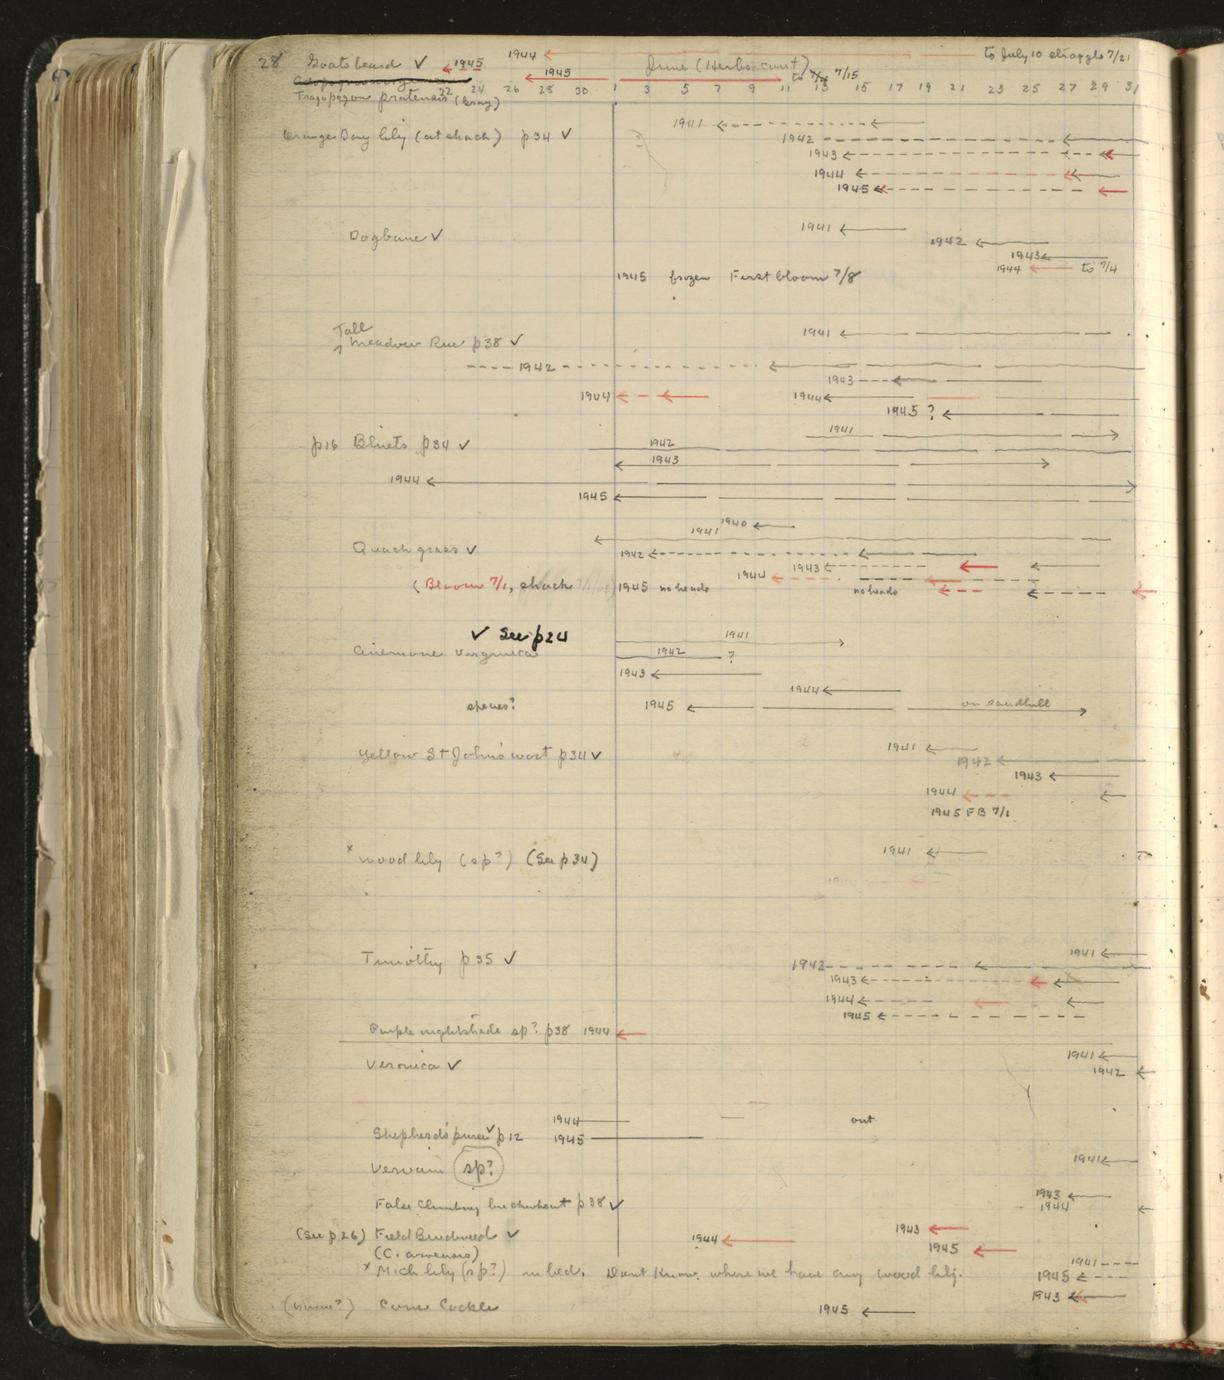 28 Goatsbeard ✓ 1945 1944 June (Herbs cont) to July 10 straggle 7/21
1945 to 7/15
Tragopogon pratensis (Gray) 22 24 26 28 30 1 3 5 7 9 11 13 15 17 19 21 23 25 27 29 31
1941
Orange Day lily (at shack) p34 ✓ 1942
1943
1944
1945
1941
Dogbane ✓ 1942
1943
1944 to 7/4
1945 frozen First bloom 7/8
Tall 1941
Meadow Rue p38 ✓
1942
1943
1944 1944
1945 ?
1941
p16 Bluets p34 ✓ 1942
1943
1944
1945
1940
1941
Quack grass ✓ 1942
1943
1944
(Bloom 7/1, shack 1945 no heads no heads
✓ See p24 1941
Anemone virginica 1942 ?
1943
1944
species? 1945 on sandhill
1941
Yellow St John's wort p34 ✓ 1942
1943
1944
1945 FB 7/1
x Wood lily (sp?) (See p34) 1941
1941
Timothy p35 ✓ 1942
1943
1944
1945
Purple nightshade sp? p38 1944
1941
Veronica ✓ 1942
1944 out
Shepherds purse ✓ p12 1945
Vervain (sp?) 1941
1943
False Climbing buckwheat p38 ✓ 1944
(See p26) Field Bindweed ✓ 1943
1944
(C. arvensis) 1945
1941
x Mich lily (sp?) in bed. Dont Know where we have any wood lily. 1945
1943
Corn Cockle 1945